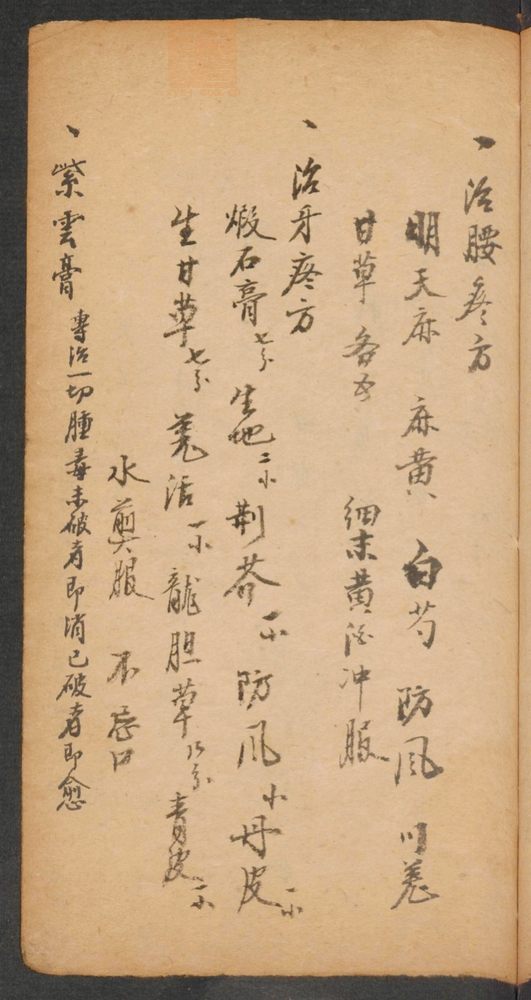 、治腰疼方
明天麻 麻黄 白芍 防風 川羌
甘草 各 細末黄酒冲服
、治牙疼方
煅石膏七分 生地二小 荆芥一小 防風小 丹皮一小
生甘草七分 羌活一小 龍胆草八分 青皮一小
水煎服 不忌口
、紫雲膏 專治一切腫毒未破者即消已破者即愈